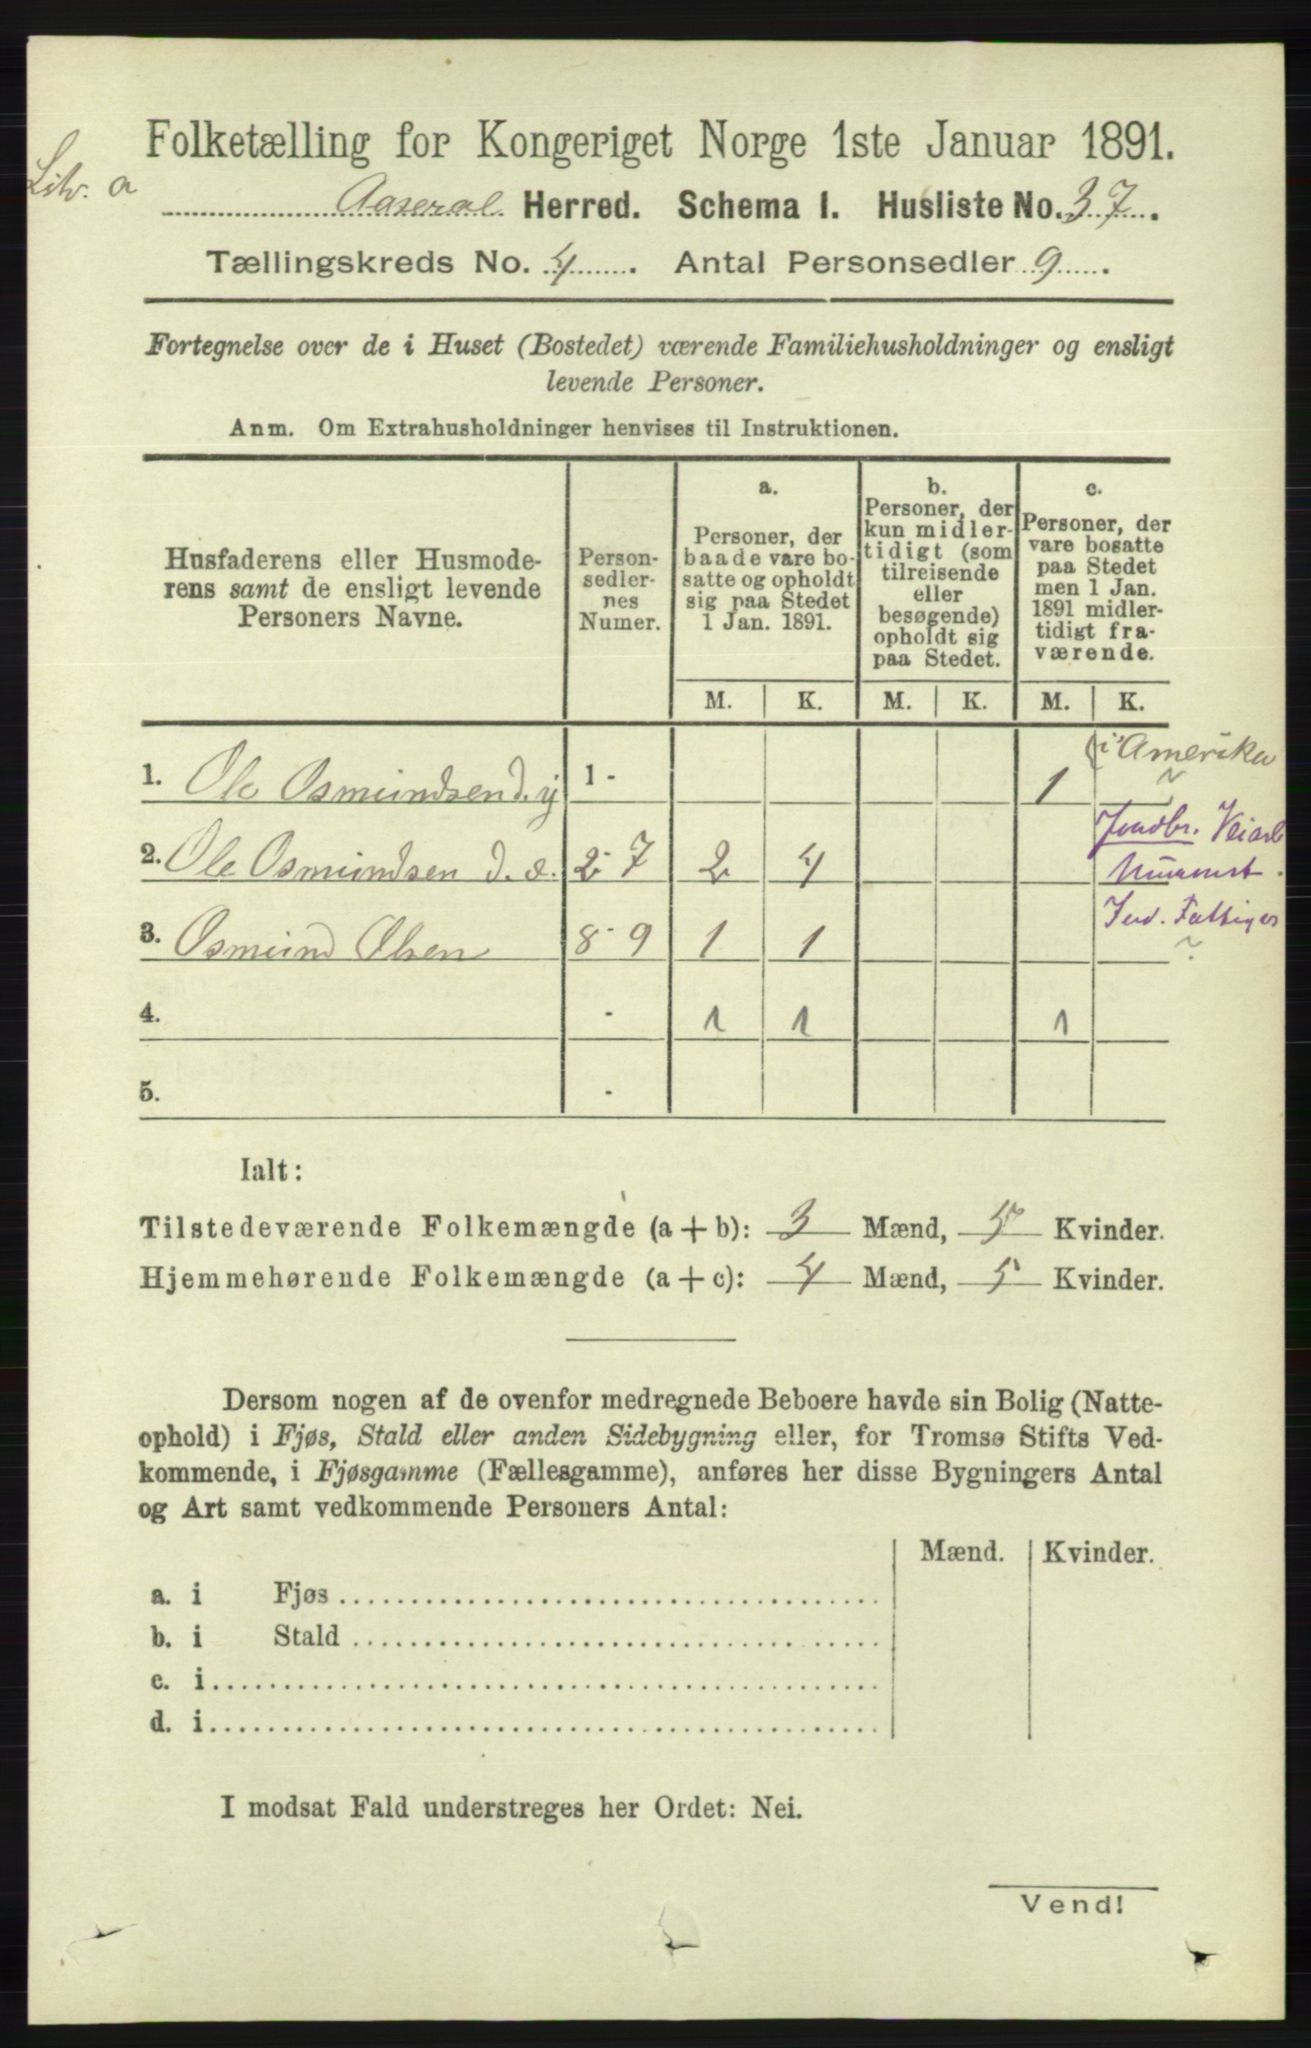 Folketælling for Kongeriget Norge 1ste Januar 1891.
Litr. a
Aaseral Herred. Schema I. Husliste No. 37.
Tællingskreds No. 4. Antal Personsedler 9.
Fortegnelse over de i Huset (Bostedet) værende Familiehusholdninger og ensligt
levende Personer.
Anm. Om Extrahusholdninger henvises til Instruktionen.
Husfaderens eller Husmode-
rens samt de ensligt levende
Personers Navne.
Person-
sedler-
nes
Numer.
a.
Personer, der
baade vare bo-
satte og opholdt
sig paa Stedet
1 Jan. 1891.
b.
Personer, der
kun midler-
tidigt (som
tilreisende
eller
besøgende)
opholdt sig
paa Stedet.
c.
Personer, der
vare bosatte
paa Stedet
men 1 Jan.
1891 midler-
tidigt fra-
værende.
M. K. M. K. M. K.
1. Ole Osmundsen d. y 1 - 1 (i Amerika
2. Ole Osmundsen d. æ. 2 - 7 2 4
3. Osmund Olsen 8 - 9 1 1
4. - 1 1 1
5. -
Ialt:
Tilstedeværende Folkemængde (a + b): 3 Mænd, 5 Kvinder.
Hjemmehørende Folkemængde (a + c): 4 Mænd, 5 Kvinder.
Dersom nogen af de ovenfor medregnede Beboere havde sin Bolig (Natte-
ophold) i Fjøs, Stald eller anden Sidebygning eller, for Tromsø Stifts Ved-
kommende, i Fjøsgamme (Fællesgamme), anføres her disse Bygningers Antal
og Art samt vedkommende Personers Antal:
Mænd. Kvinder.
a. i Fjøs
b. i Stald
c. i
d. i
I modsat Fald understreges her Ordet: Nei.
Vend!